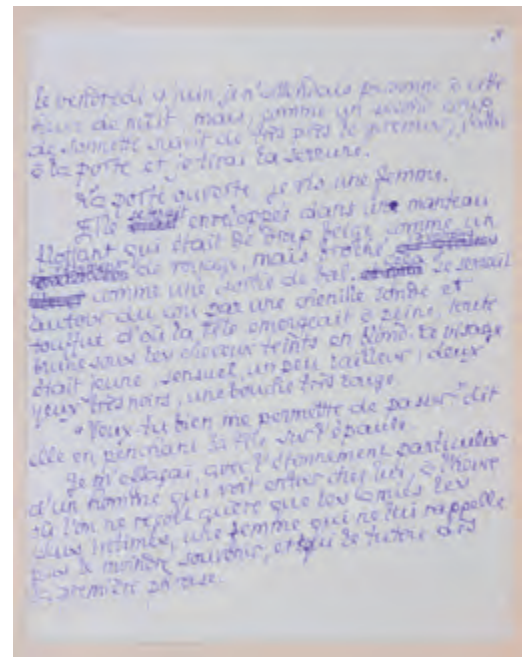 le vendredi 9 juin je n'attendais personne à cette
heure de nuit, mais, comme un second coup
de sonnette suivit de très près le premier, j'allai
à la porte et je tirai la serrure.
La porte ouverte, je vis une femme.
Elle enveloppée dans une manteau
flottant qui était de drap beige comme un
de voyage, mais broché
comme une sortie de bal, se serrait
autour du cou par une chenille ronde et
touffue d'où la tête émergeait à peine, toute
brune sous les cheveux teints en blond. Le visage
était jeune, sensuel, un peu railleur ; deux
yeux très noirs, une bouche très rouge.
"Veux-tu bien me permettre de passer" dit
elle en penchant la tête sur l'épaule.
Je m'effaçai, avec l'étonnement particulier
d'un homme qui voit entrer chez lui, à l'heure
où l'on ne reçoit guère que les amies les
plus intimes, une femme qui ne lui rappelle
pas le moindre souvenir, et qui le tutoie dès
la première phrase.